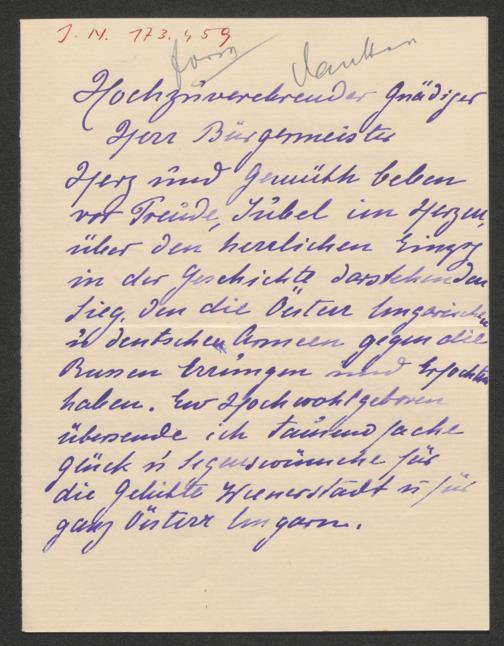 J. N. 173.459
danken
Hochzuverehrender Gnädiger
Herr Bürgermeister
Herz und Gemüth beben
vor Freude, Jubel im Herzen,
über den herrlichen Einzig
in der Geschichte dastehenden
Sieg. den die Österr Ungarischen
u deutschen Armeen gegen die
Russen Errungen und Erfochten
haben. Euer Hochwohlgeboren
übersende ich tausendfache
Glück u Segenswünsche für
die Geliebte Wienerstadt u für
ganz Österr Ungarn.